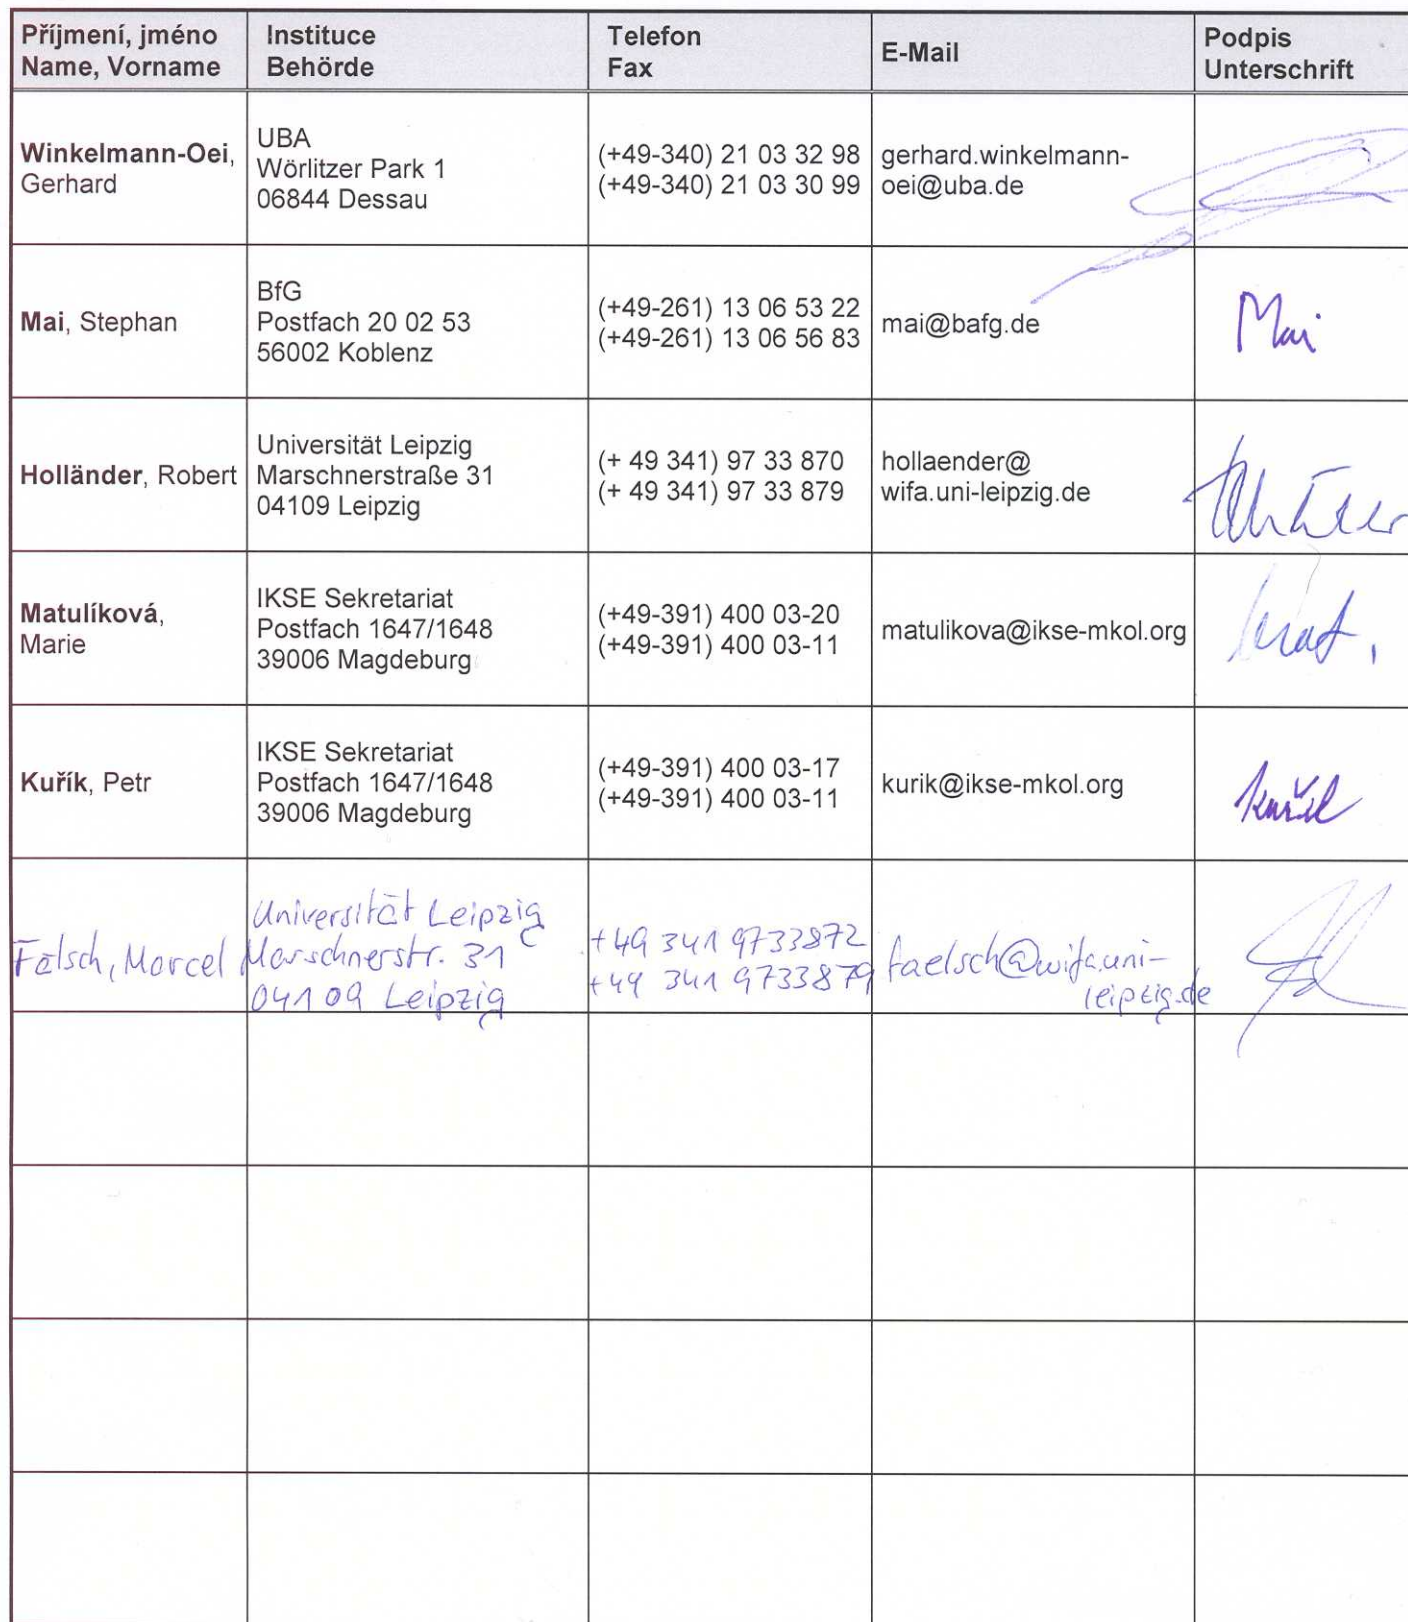 Příjmení, jméno
Name, Vorname
Instituce
Behörde
Telefon
Fax
E-Mail
Podpis
Unterschrift
Winkelmann-Oei,
Gerhard
UBA
Wörlitzer Park 1
06844 Dessau
(+49-340) 21 03 32 98
(+49-340) 21 03 30 99
gerhard.winkelmann-
oei@uba.de
Mai, Stephan
BfG
Postfach 20 02 53
56002 Koblenz
(+49-261) 13 06 53 22
(+49-261) 13 06 56 83
mai@bafg.de
Mai
Holländer, Robert
Universität Leipzig
Marschnerstraße 31
04109 Leipzig
(+ 49 341) 97 33 870
(+ 49 341) 97 33 879
hollaender@
wifa.uni-leipzig.de
Matulíková,
Marie
IKSE Sekretariat
Postfach 1647/1648
39006 Magdeburg
(+49-391) 400 03-20
(+49-391) 400 03-11
matulikova@ikse-mkol.org
Kuřík, Petr
IKSE Sekretariat
Postfach 1647/1648
39006 Magdeburg
(+49-391) 400 03-17
(+49-391) 400 03-11
kurik@ikse-mkol.org
Fälsch, Marcel
Universität Leipzig
Marschnerstr. 31
04109 Leipzig
+49 341 9733872
+49 341 9733879
faelsch@wifa.uni-
leipzig.de